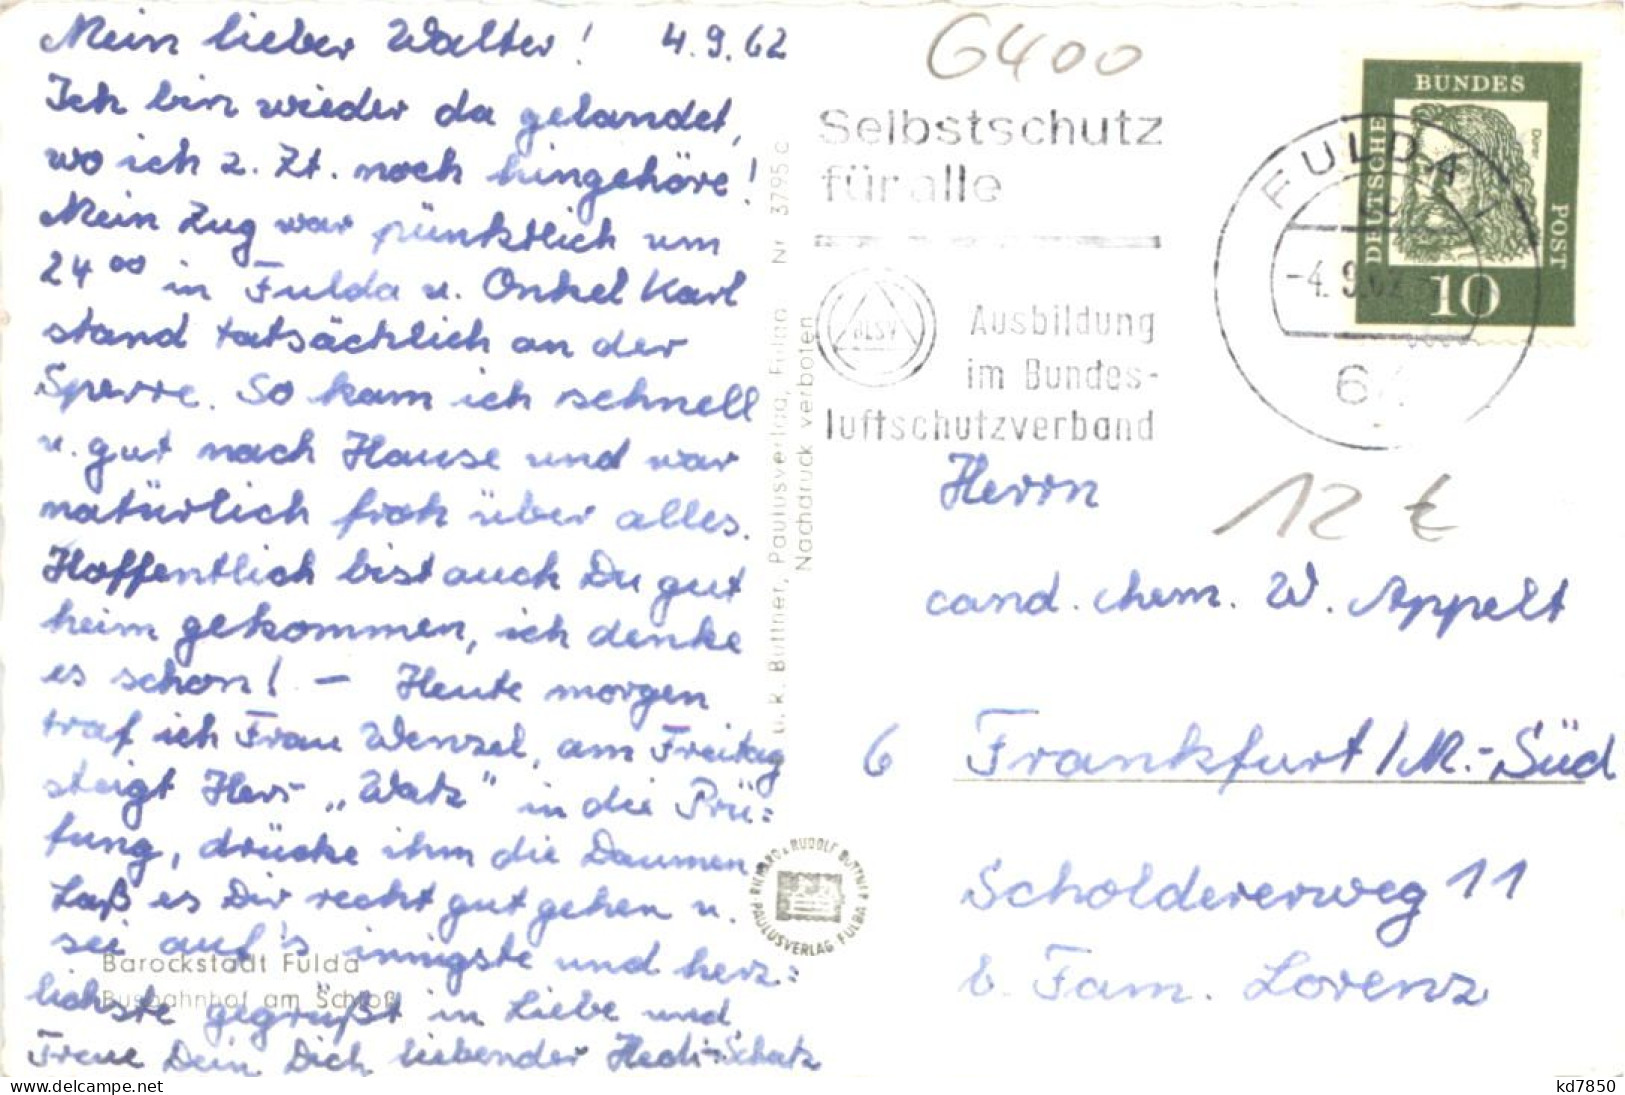 Mein lieber Walter! 4.9.62
Ich bin wieder da gelandet,
wo ich z. Zt. noch hingehöre!
Mein Zug war pünktlich um
24⁰⁰ in Fulda u. Onkel Karl
stand tatsächlich an der
Sperre. So kam ich schnell
u. gut nach Hause und war
natürlich froh über alles.
Hoffentlich bist auch Du gut
heim gekommen, ich denke
es schon! – Heute morgen
traf ich Frau Wenzel, am Freitag
steigt Herr „Watz" in die Prü=
fung, drücke ihm die Daumen
Laß es Dir recht gut gehen u.
sei auf's innigste und herz=
lichste gegrüßt in Liebe und
Treue Dein Dich liebender Hedi-Schatz
Barockstadt Fulda
Busbahnhof am Schloß
u. R. Büttner, Paulusverlag, Fulda Nr 3795 c
Nachdruck verboten
RICHARD & RUDOLF BÜTTNER
PAULUSVERLAG FULDA
6400
Selbstschutz
für alle
BLSV
Ausbildung
im Bundes-
luftschutzverband
FULDA 1
-4.9.62
64
DEUTSCHE
BUNDES
POST
Dürer
10
Herrn
12 €
cand. chem. W. Appelt
6 Frankfurt/M.-Süd
Scholdererweg 11
b. Fam. Lorenz
www.delcampe.net
kd7850